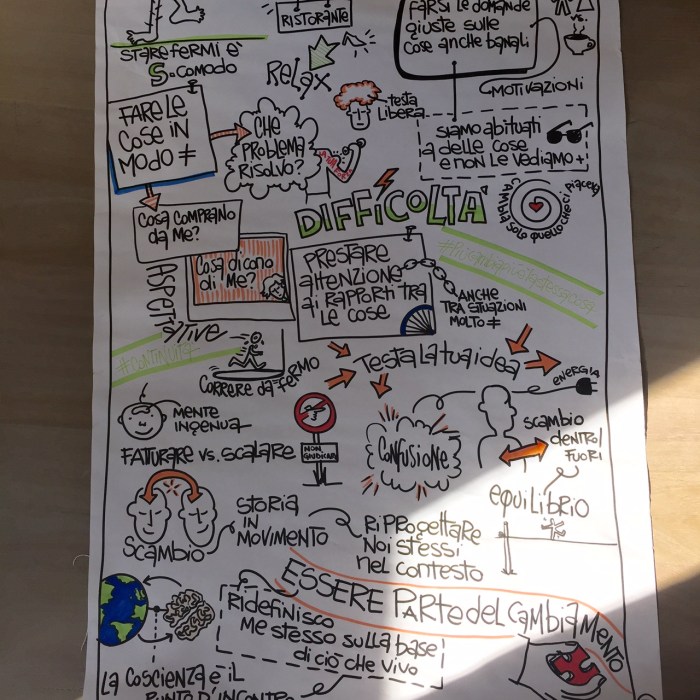 RISTORANTE
STARE FERMI È
S-COMODO
RELAX
FARSI LE DOMANDE
GIUSTE SULLE
COSE ANCHE BANALI
VS.
MOTIVAZIONI
FARE LE
COSE IN
MODO ≠
CHE
PROBLEMA
RISOLVO?
TESTA
LIBERA
SIAMO ABITUATI
A DELLE COSE
E NON LE VEDIAMO +
CAMBIA SOLO QUELLO CHE CI PIACEVA
DIFFICOLTÀ
COSA COMPRANO
DA ME?
COSA DICONO
DI ME?
ASPETTATIVE
PRESTARE
ATTENZIONE
AI RAPPORTI TRA
LE COSE
ANCHE
TRA SITUAZIONI
MOLTO ≠
CORRERE DA FERMO
TESTA LA TUA IDEA
ENERGIA
MENTE
INGENUA
NON
GIUDICARE
FATTURARE VS. SCALARE
CONFUSIONE
SCAMBIO
DENTRO/
FUORI
EQUILIBRIO
SCAMBIO
STORIA
IN
MOVIMENTO
RIPROGETTARE
NOI STESSI
NEL CONTESTO
ESSERE PARTE DEL CAMBIAMENTO
RIDEFINISCO
ME STESSO SULLA BASE
DI CIÒ CHE VIVO
LA COSCIENZA È IL
PUNTO D'INCONTRO